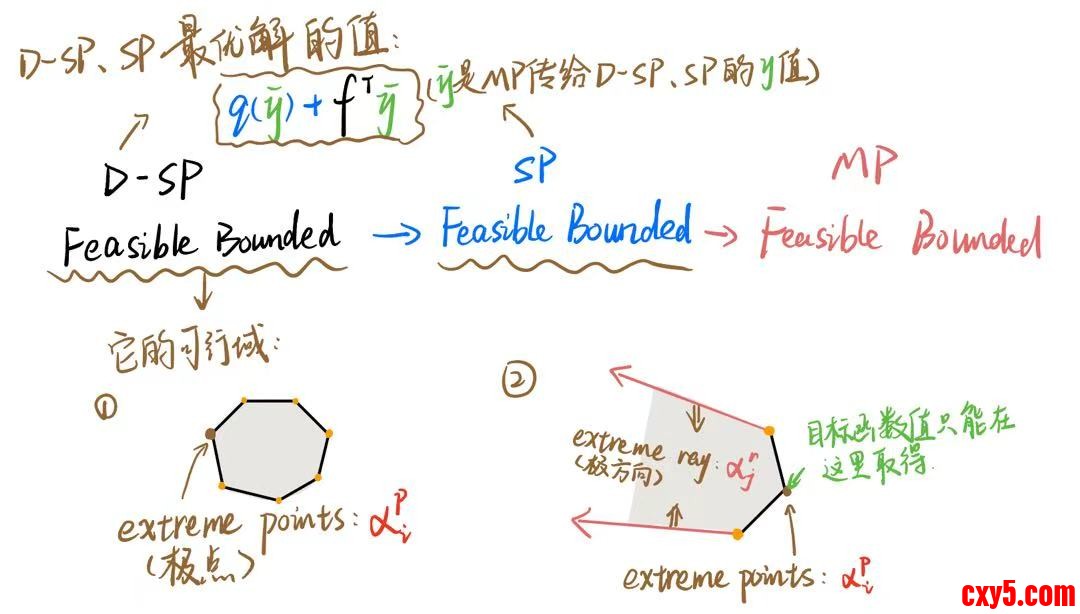 D-SP、SP 最优解的值：
q(ȳ) + fᵀȳ (ȳ是MP传给D-SP、SP的y值)
D-SP SP MP
Feasible Bounded → Feasible Bounded → Feasible Bounded
它的可行域：
① ②
目标函数值只能在
这里取得.
extreme ray: αⱼʳ
(极方向)
extreme points: αᵢᵖ
(极点)
extreme points: αᵢᵖ
cxy5.com